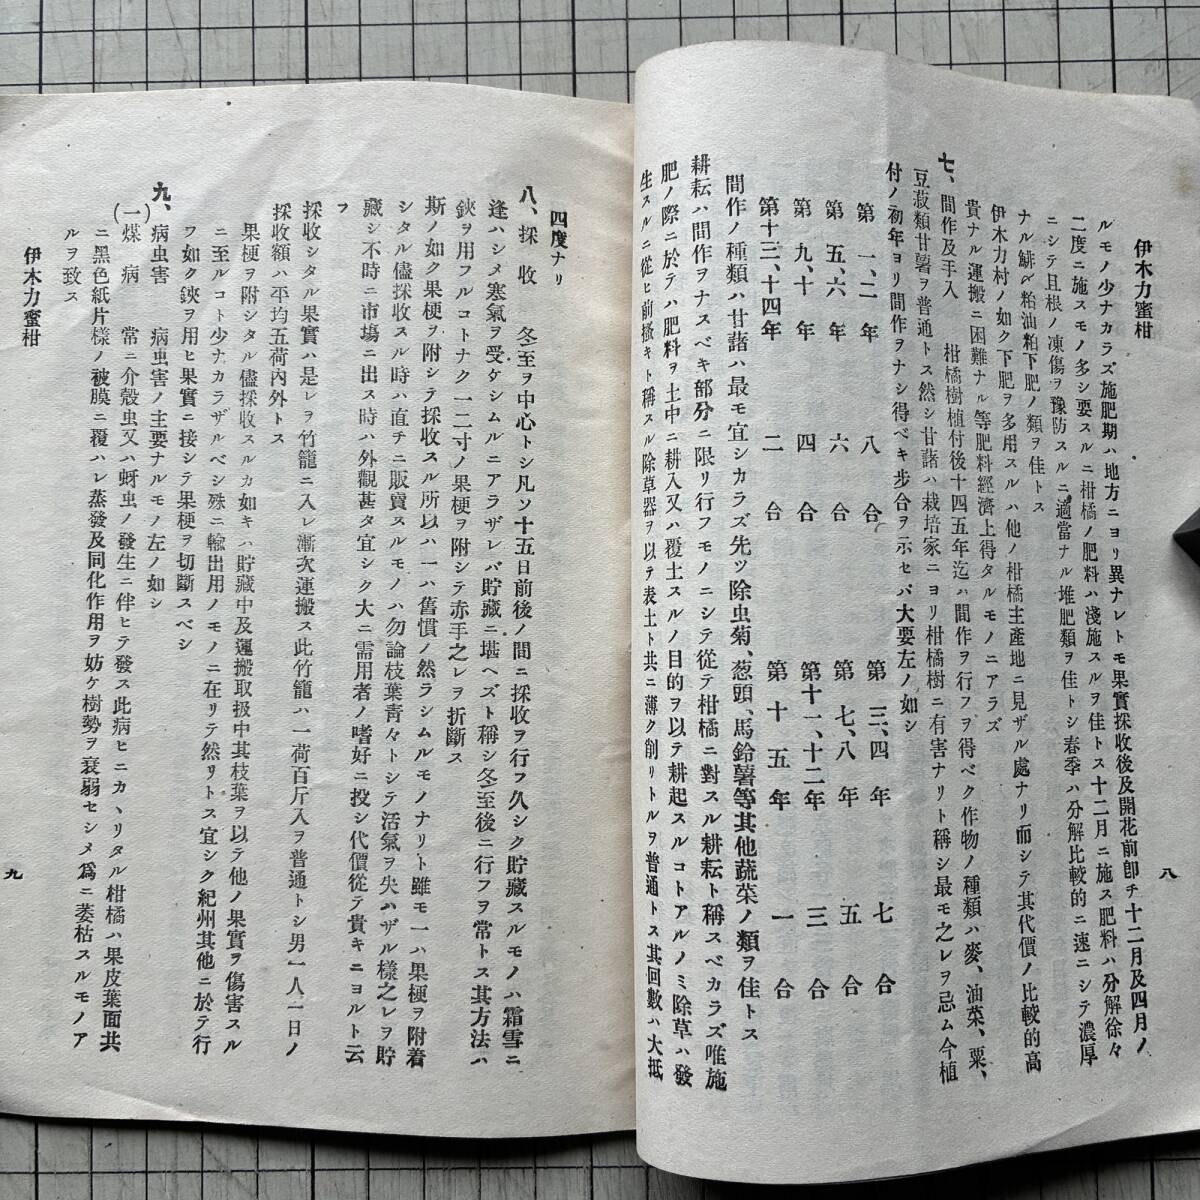 伊木力蜜柑
ルモノ少ナカラズ施肥期ハ地方ニヨリ異ナレトモ果實採收後及開花前卽チ十二月及四月ノ
二度ニ施スモノ多シ要スルニ柑橘ノ肥料ハ淺施スルヲ佳トス十二月ニ施ス肥料ハ分解徐々
ニシテ且根ノ凍傷ヲ豫防スルニ適當ナル堆肥類ヲ佳トシ春季ハ分解比較的ニ速ニシテ濃厚
ナル鯡〆粕油粕下肥ノ類ヲ佳トス
伊木力村ノ如ク下肥ヲ多用スルハ他ノ柑橘主產地ニ見ザル處ナリ而シテ其代價ノ比較的高
貴ナル運搬ニ困難ナル等肥料經濟上得タルモノニアラズ
七、間作及手入 柑橘樹植付後十四五年迄ハ間作ヲ行フヲ得ベク作物ノ種類ハ麥、油菜、粟、
豆菽類甘薯ヲ普通トス然シ甘藷ハ栽培家ニヨリ柑橘樹ニ有害ナリト稱シ最モ之レヲ忌ム今植
付ノ初年ヨリ間作ヲナシ得ベキ步合ヲ示セバ大要左ノ如シ
第一、二年 八合 第三、四年 七合
第五、六年 六合 第七、八年 五合
第九、十年 四合 第十一、十二年 三合
第十三、十四年 二合 第十五年 一合
間作ノ種類ハ甘藷ハ最モ宜シカラズ先ツ除虫菊、葱頭、馬鈴薯等其他蔬菜ノ類ヲ佳トス
耕耘ハ間作ヲナスベキ部分ニ限リ行フモノニシテ從テ柑橘ニ對スル耕耘ト稱スベカラズ唯施
肥ノ際ニ於テハ肥料ヲ土中ニ耕入又ハ覆土スルノ目的ヲ以テ耕起スルコトアルノミ除草ハ發
生スルニ從ヒ前搔キト稱スル除草器ヲ以テ表土ト共ニ薄ク削リトルヲ普通トス其回數ハ大抵
八
四度ナリ
八、採收 冬至ヲ中心トシ凡ソ十五日前後ノ間ニ採收ヲ行フ久シク貯藏スルモノハ霜雪ニ
逢ハシメ寒氣ヲ受ケシムルニアラザレバ貯藏ニ堪ヘズト稱シ冬至後ニ行フヲ常トス其方法ハ
鋏ヲ用フルコトナク一二寸ノ果梗ヲ附シテ赤手之レヲ折斷ス
斯ノ如ク果梗ヲ附シテ採收スル所以ハ一ハ舊慣ノ然ラシムルモノナリト雖モ一ハ果梗ヲ附着
シタル儘採收スル時ハ直チニ販賣スルモノハ勿論枝葉靑々トシテ活氣ヲ失ハザル樣之レヲ貯
藏シ不時ニ市塲ニ出ス時ハ外觀甚タ宜シク大ニ需用者ノ嗜好ニ投シ代價從テ貴キニヨルト云
フ
採收シタル果實ハ是レヲ竹籠ニ入レ漸次運搬ス此竹籠ハ一荷百斤入ヲ普通トシ男一人一日ノ
採收額ハ平均五荷內外トス
果梗ヲ附シタル儘採收スルカ如キハ貯藏中及運搬取扱中其枝葉ヲ以テ他ノ果實ヲ傷害スル
ニ至ルコト少ナカラザルベシ殊ニ輸出用ノモノニ在リテ然リトス宜シク紀州其他ニ於テ行
フ如ク鋏ヲ用ヒ果實ニ接シテ果梗ヲ切斷スベシ
九、病虫害 病虫害ノ主要ナルモノ左ノ如シ
(一)煤病 常ニ介殼虫又ハ蚜虫ノ發生ニ伴ヒテ發ス此病ヒニカヽリタル柑橘ハ果皮葉面共
ニ黑色紙片樣ノ被膜ニ覆ハレ蒸發及同化作用ヲ妨ケ樹勢ヲ衰弱セシメ爲ニ萎枯スルモノア
ルヲ致ス
伊木力蜜柑
九